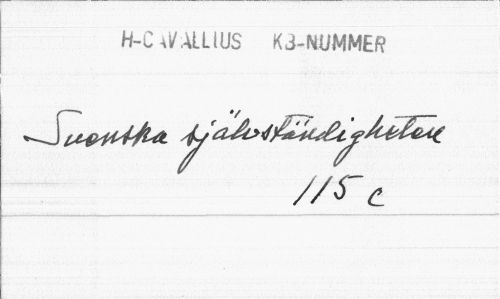 H-CAVALLIUS KB-NUMMER
Svenska självständigheten
115 c